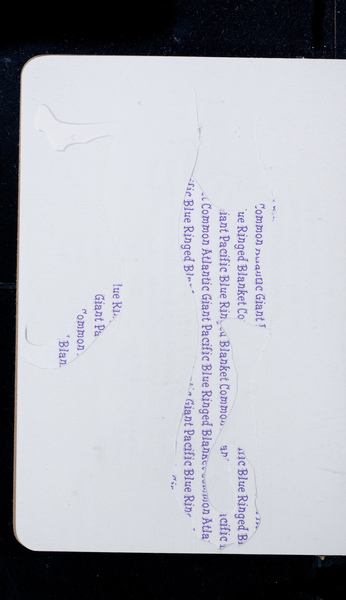 Common Atlantic Giant
ue Ringed Blanket Co ific Blue Ringed B
iant Pacific Blue Ringed Blanket Common an acific
t Common Atlantic Giant Pacific Blue Ringed Blanket Common Atla
fic Blue Ringed Bl Giant Pacific Blue Rin
lue Ri
Giant Pa
Common
Blan